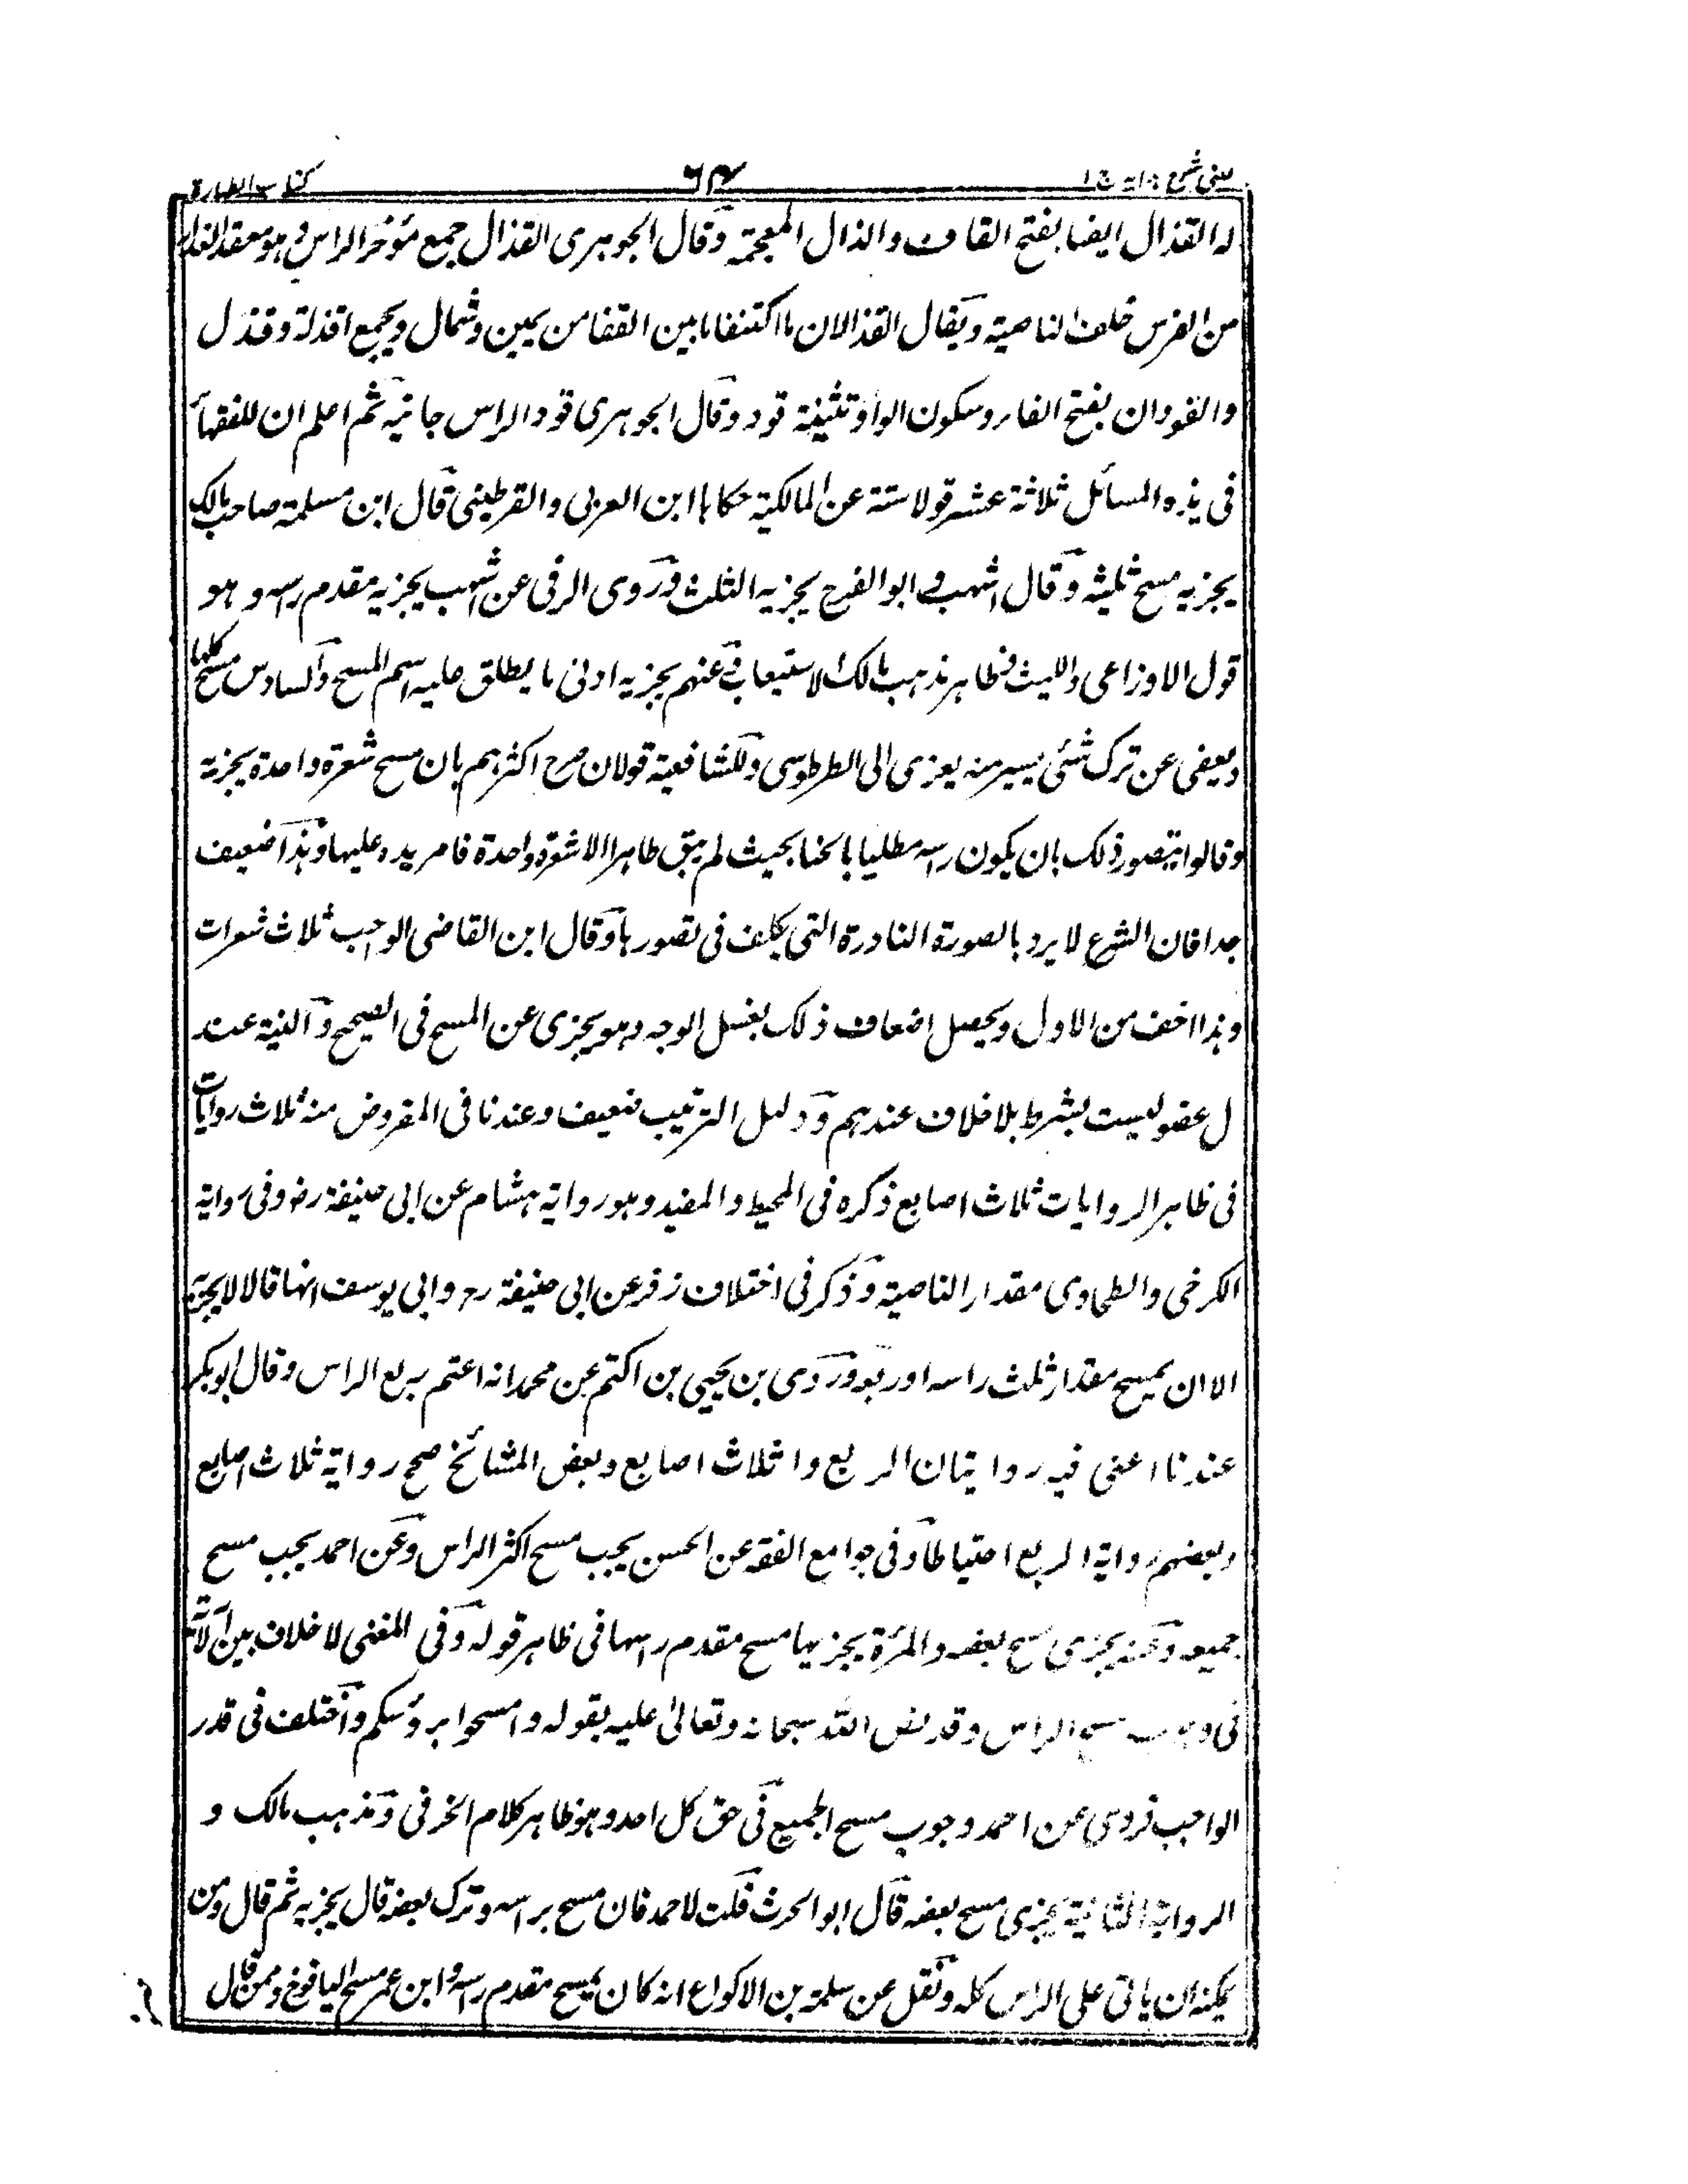 عینی شرح ہدایہ ج ۱
۶۴
کتاب الطہارۃ
لہ القذال ایضا بفتح القاف والذال المعجمۃ وقال الجوہری القذال جمع مؤخر الراس وہو معقد العذار
من الفرس خلف الناصیۃ ویقال القذالان ما اکتنفا ما بین القفا من یمین وشمال ویجمع اقذلۃ وقذل
والفودان بفتح الفاء وسکون الواو تثنیۃ قود وقال الجوہری قود الراس جانبیہ ثم اعلم ان للفقہاء
فی ہذہ المسائل ثلاثۃ عشر قولا ستۃ عن المالکیۃ حکاہا ابن العربی والقرطبی قال ابن مسلمۃ صاحب مالک
یجزیہ مسح ثلیثہ وقال اشہب وابو الفرج یجزیہ الثلث وروی الرقی عن اشہب یجزیہ مقدم راسہ وہو
قول الاوزاعی واللیث وظاہر مذہب مالک الاستیعاب وعنہم یجزیہ ادنی ما یطلق علیہ اسم المسح والسادس مسح کلہا
ویعفی عن ترک شئی یسیر منہ یعزی الی الطرطوسی وللشافعیۃ قولان صرح اکثرہم بان مسح شعرۃ واحدۃ یجزیہ
وقالوا یتصور ذلک بان یکون راسہ مطلیا بالحنا بحیث لم یبق ظاہرا الا شعرۃ واحدۃ فامر یدہ علیہا وہذا ضعیف
جدا فان الشرع لا یرد بالصورۃ النادرۃ التی یکلف فی تصورہا وقال ابن القاضی الواجب ثلاث شعرات
وہذا اخف من الاول ویحصل اضعاف ذلک بغسل الوجہ وہو یجزی عن المسح فی الصحیح والنیۃ عند
ل عضو لیست بشرط بلا خلاف عندہم ودلیل الترتیب ضعیف وعندنا فی المفروض منہ ثلاث روایات
فی ظاہر الروایات ثلاث اصابع ذکرہ فی المحیط والمفید وہو روایۃ ہشام عن ابی حنیفۃ رض وفی روایۃ
الکرخی والطحاوی مقدار الناصیۃ وذکر فی اختلاف زفر عن ابی حنیفۃ رح وابی یوسف انہا قالا لا یجزیہ
الا ان یمسح مقدار ثلث راسہ او ربعہ وروی بن یحیی بن اکتم عن محمد انہ اعتم بربع الراس وقال ابو بکر
عندنا اعنی فیہ روایتان الربع وا ثلاث اصابع وبعض المشائخ صحح روایۃ ثلاث اصابع
وبعضہم روایۃ الربع احتیاطا وفی جوامع الفقہ عن الحسن یجب مسح اکثر الراس وعن احمد یجب مسح
جمیعہ وعنہ یجزی مسح بعضہ والمرٔۃ یجزیہا مسح مقدم راسہا فی ظاہر قولہ وفی المغنی لا خلاف بین الائمۃ
فی وجوب مسح الراس وقد نص اللہ سبحانہ وتعالیٰ علیہ بقولہ وامسحوا برؤسکم واختلف فی قدر
الواجب فروی عن احمد وجوب مسح الجمیع فی حق کل احد وہو ظاہر کلام الخرقی ومذہب مالک و
الروایۃ الثانیۃ یجزی مسح بعضہ قال ابو الحرث قلت لاحمد فان مسح براسہ وترک بعضہ قال یجزیہ ثم قال ومن
یمکنہ ان یاتی علی الراس کلہ ونقل عن سلمۃ بن الاکواع انہ کان یمسح مقدم راسہ وابن عمر مسح الیافوخ وممن قال